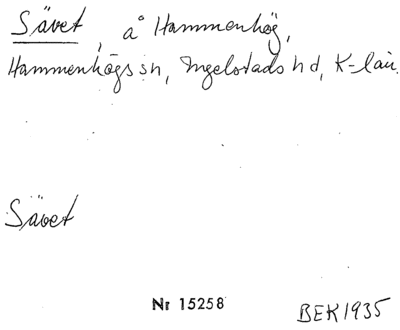 Sävet, å Hammenhög,
Hammenhögs sn, Ingelstads hd, K-län.
Sävet
Nr 15258
BEK 1935